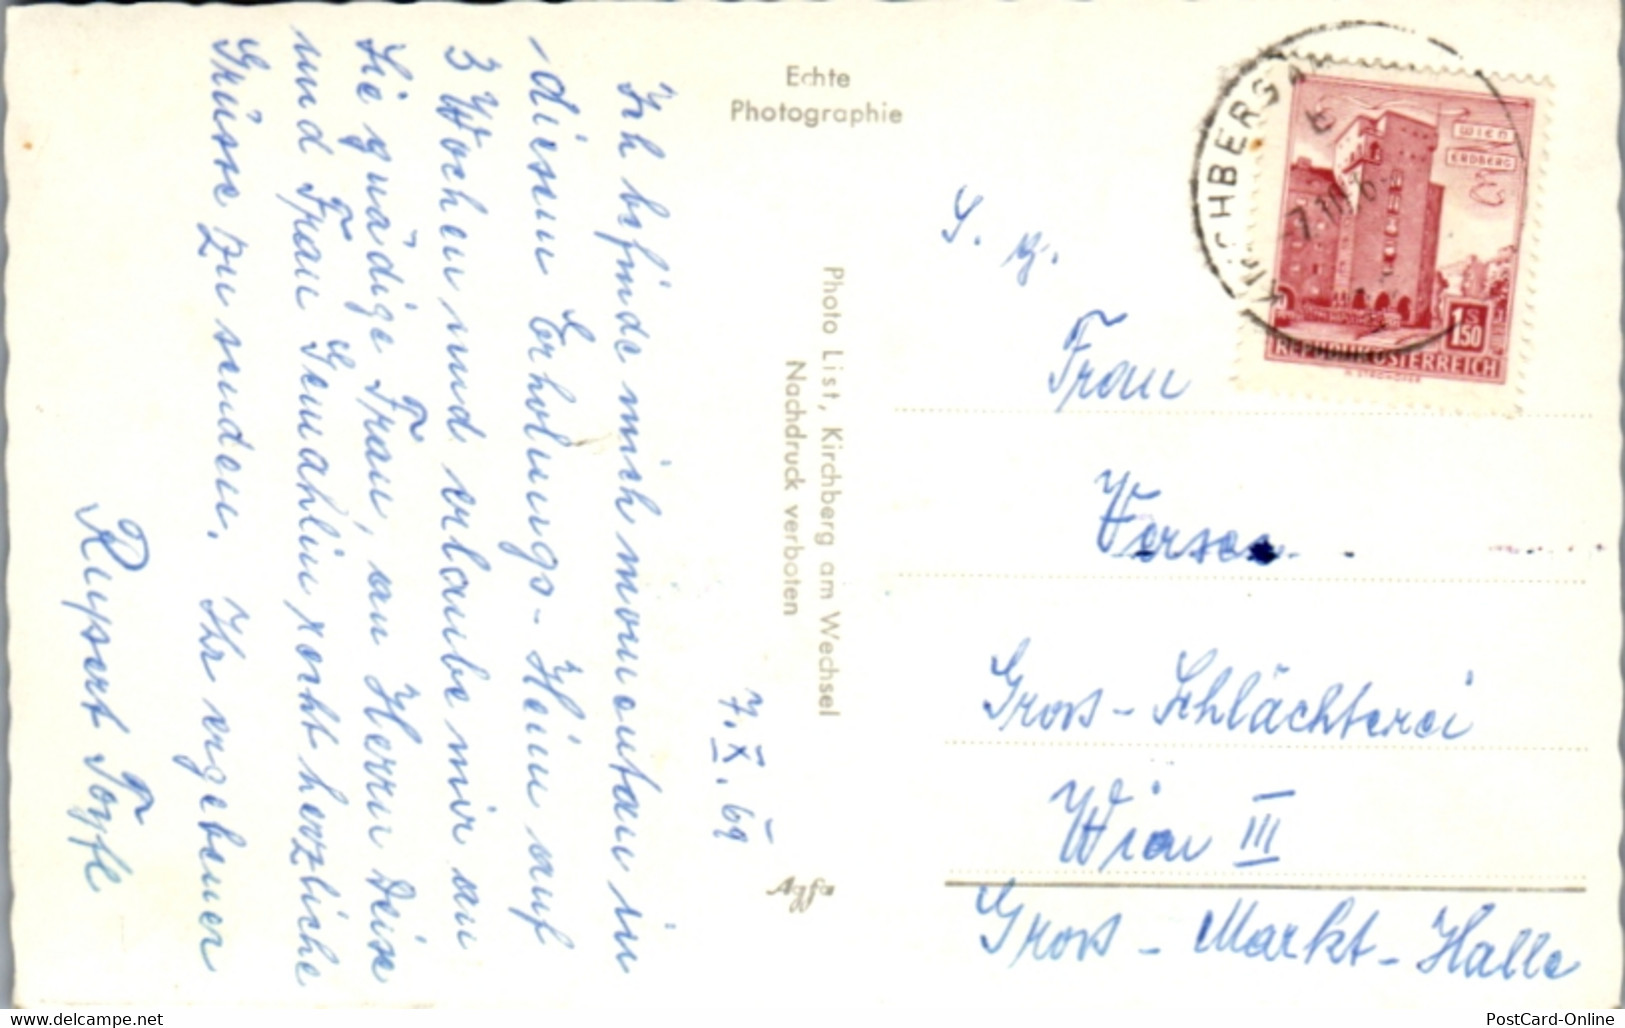 Echte
Photographie
Ich befinde mich momentan in
diesem Erholungs-Heim auf
3 Wochen und erlaube mir an
Sie gnädige Frau, an Herrn Deise
und Frau Gemahlin recht herzliche
Grüsse zu senden. Ihr ergebener
Rupert Topfl
7. X. 69
Photo List, Kirchberg am Wechsel
Nachdruck verboten
Agfa
KIRCHBERG AM
WIEN
ERDBERG
1 S 50
REPUBLIK ÖSTERREICH
S. g.
Frau
Gross-Schlächterei
Wien III
Gross-Markt-Halle
PostCard-Online